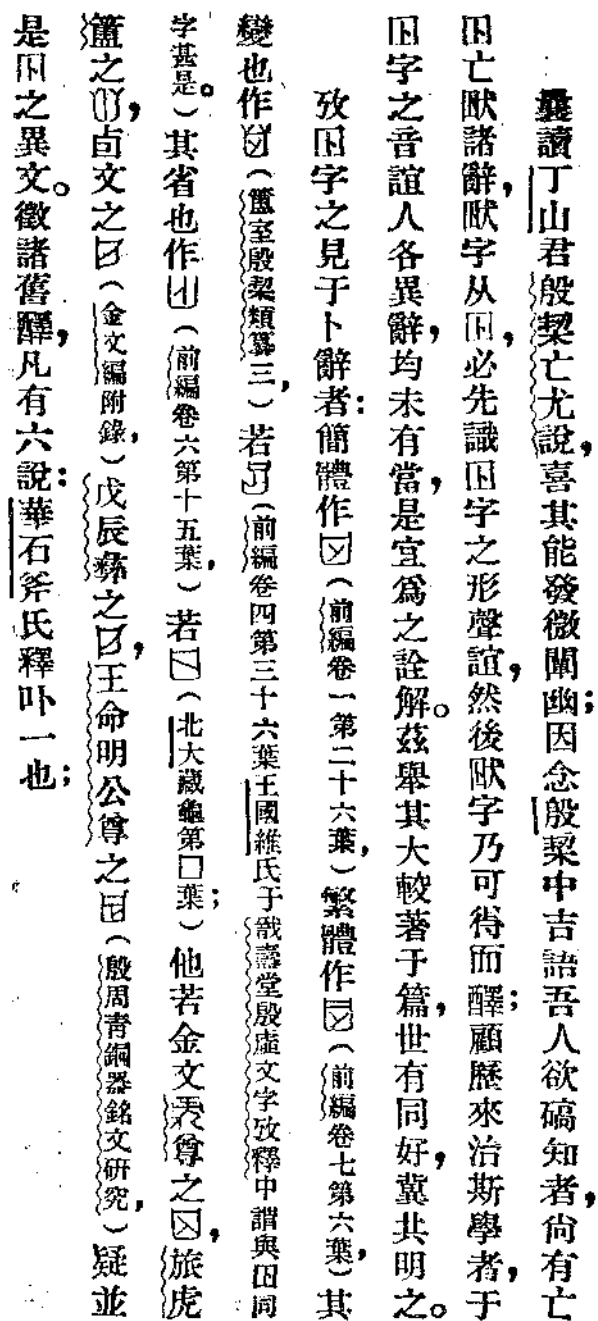 曩讀丁山君殷栔亡尤說，喜其能發微闡幽；因念殷栔中吉語吾人欲碻知者，尙有亡
𡆥亡𤞞諸辭，𤞞字从𡆥，必先識𡆥字之形聲誼，然後𤞞字乃可得而釋；顧歷來治斯學者，于
𡆥字之音誼人各異辭，均未有當，是宜爲之詮解。茲舉其大較著于篇，世有同好，冀共明之。
攷𡆥字之見于卜辭者：簡體作（前編卷一第二十六葉，）繁體作（前編卷七第六葉，）其
變也作（簠室殷栔類纂三，）若（前編卷四第三十六葉王國維氏于戩壽堂殷虛文字攷釋中謂與田同
字甚是。）其省也作（前編卷六第十五葉，）若（北大藏龜第□葉；）他若金文尊之，旅虎
簠之，卣文之（金文編附錄，）戊辰彝之，王命明公尊之（殷周靑銅器銘文硏究，）疑並
是𡆥之異文。徵諸舊釋，凡有六說：華石斧氏釋卟一也；